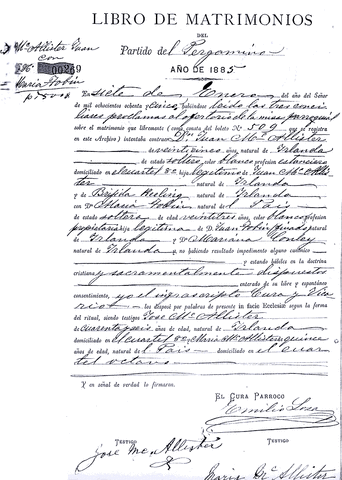 LIBRO DE MATRIMONIOS
DEL
Partido del Pergamino
AÑO DE 1885
Mc Allister Juan
con
00269
Maria Tobin
En siete de Enero del año del Señor
de mil ochocientos ochenta y cinco, habiéndose leido las tres conci
liares proclamas al ofertorio de la misa parroquial
sobre el matrimonio que libremente (como consta del boleto Nº 509 que se registra
en este Archivo) intentaba contraer Dn. Juan Mc Allister
de veinticinco años, natural de Irlanda
de estado soltero, color blanco profesion estanciero
domiciliado en el cuartel 8º hijo legítimo de Juan Mc Allis
ter natural de Irlanda
y natural de Irlanda
con Da. Maria Tobin natural del Pais
de estado soltera de edad veintitres años, color blanco profesion
propietaria hija legítima de D. Juan Tobin finado natural
de Irlanda y Da. Mariana Conley
natural de Irlanda y no habiendo resultado impedimento alguno canónico
y estando hábiles en la doctrina
cristiana y sacramentalmente dispuestos
enterado de su libre y espontáneo
consentimiento, yo el infrascripto Cura y Vica
rio los desposé por palabras de presente in facie Ecclesiæ segun la forma del
ritual, siendo testigos Jose Mc Allister
de cuarenta y seis de edad, natural de Irlanda
domiciliado en el cuartel 8º y Maria Mc Allister quince
años de edad, natural del Pais domiciliado en el cuar
tel octavo
Y en señal de verdad lo firmaron.
EL CURA PÁRROCO
Emilio
TESTIGO
TESTIGO
José Mc Allister
Maria Mc Allister